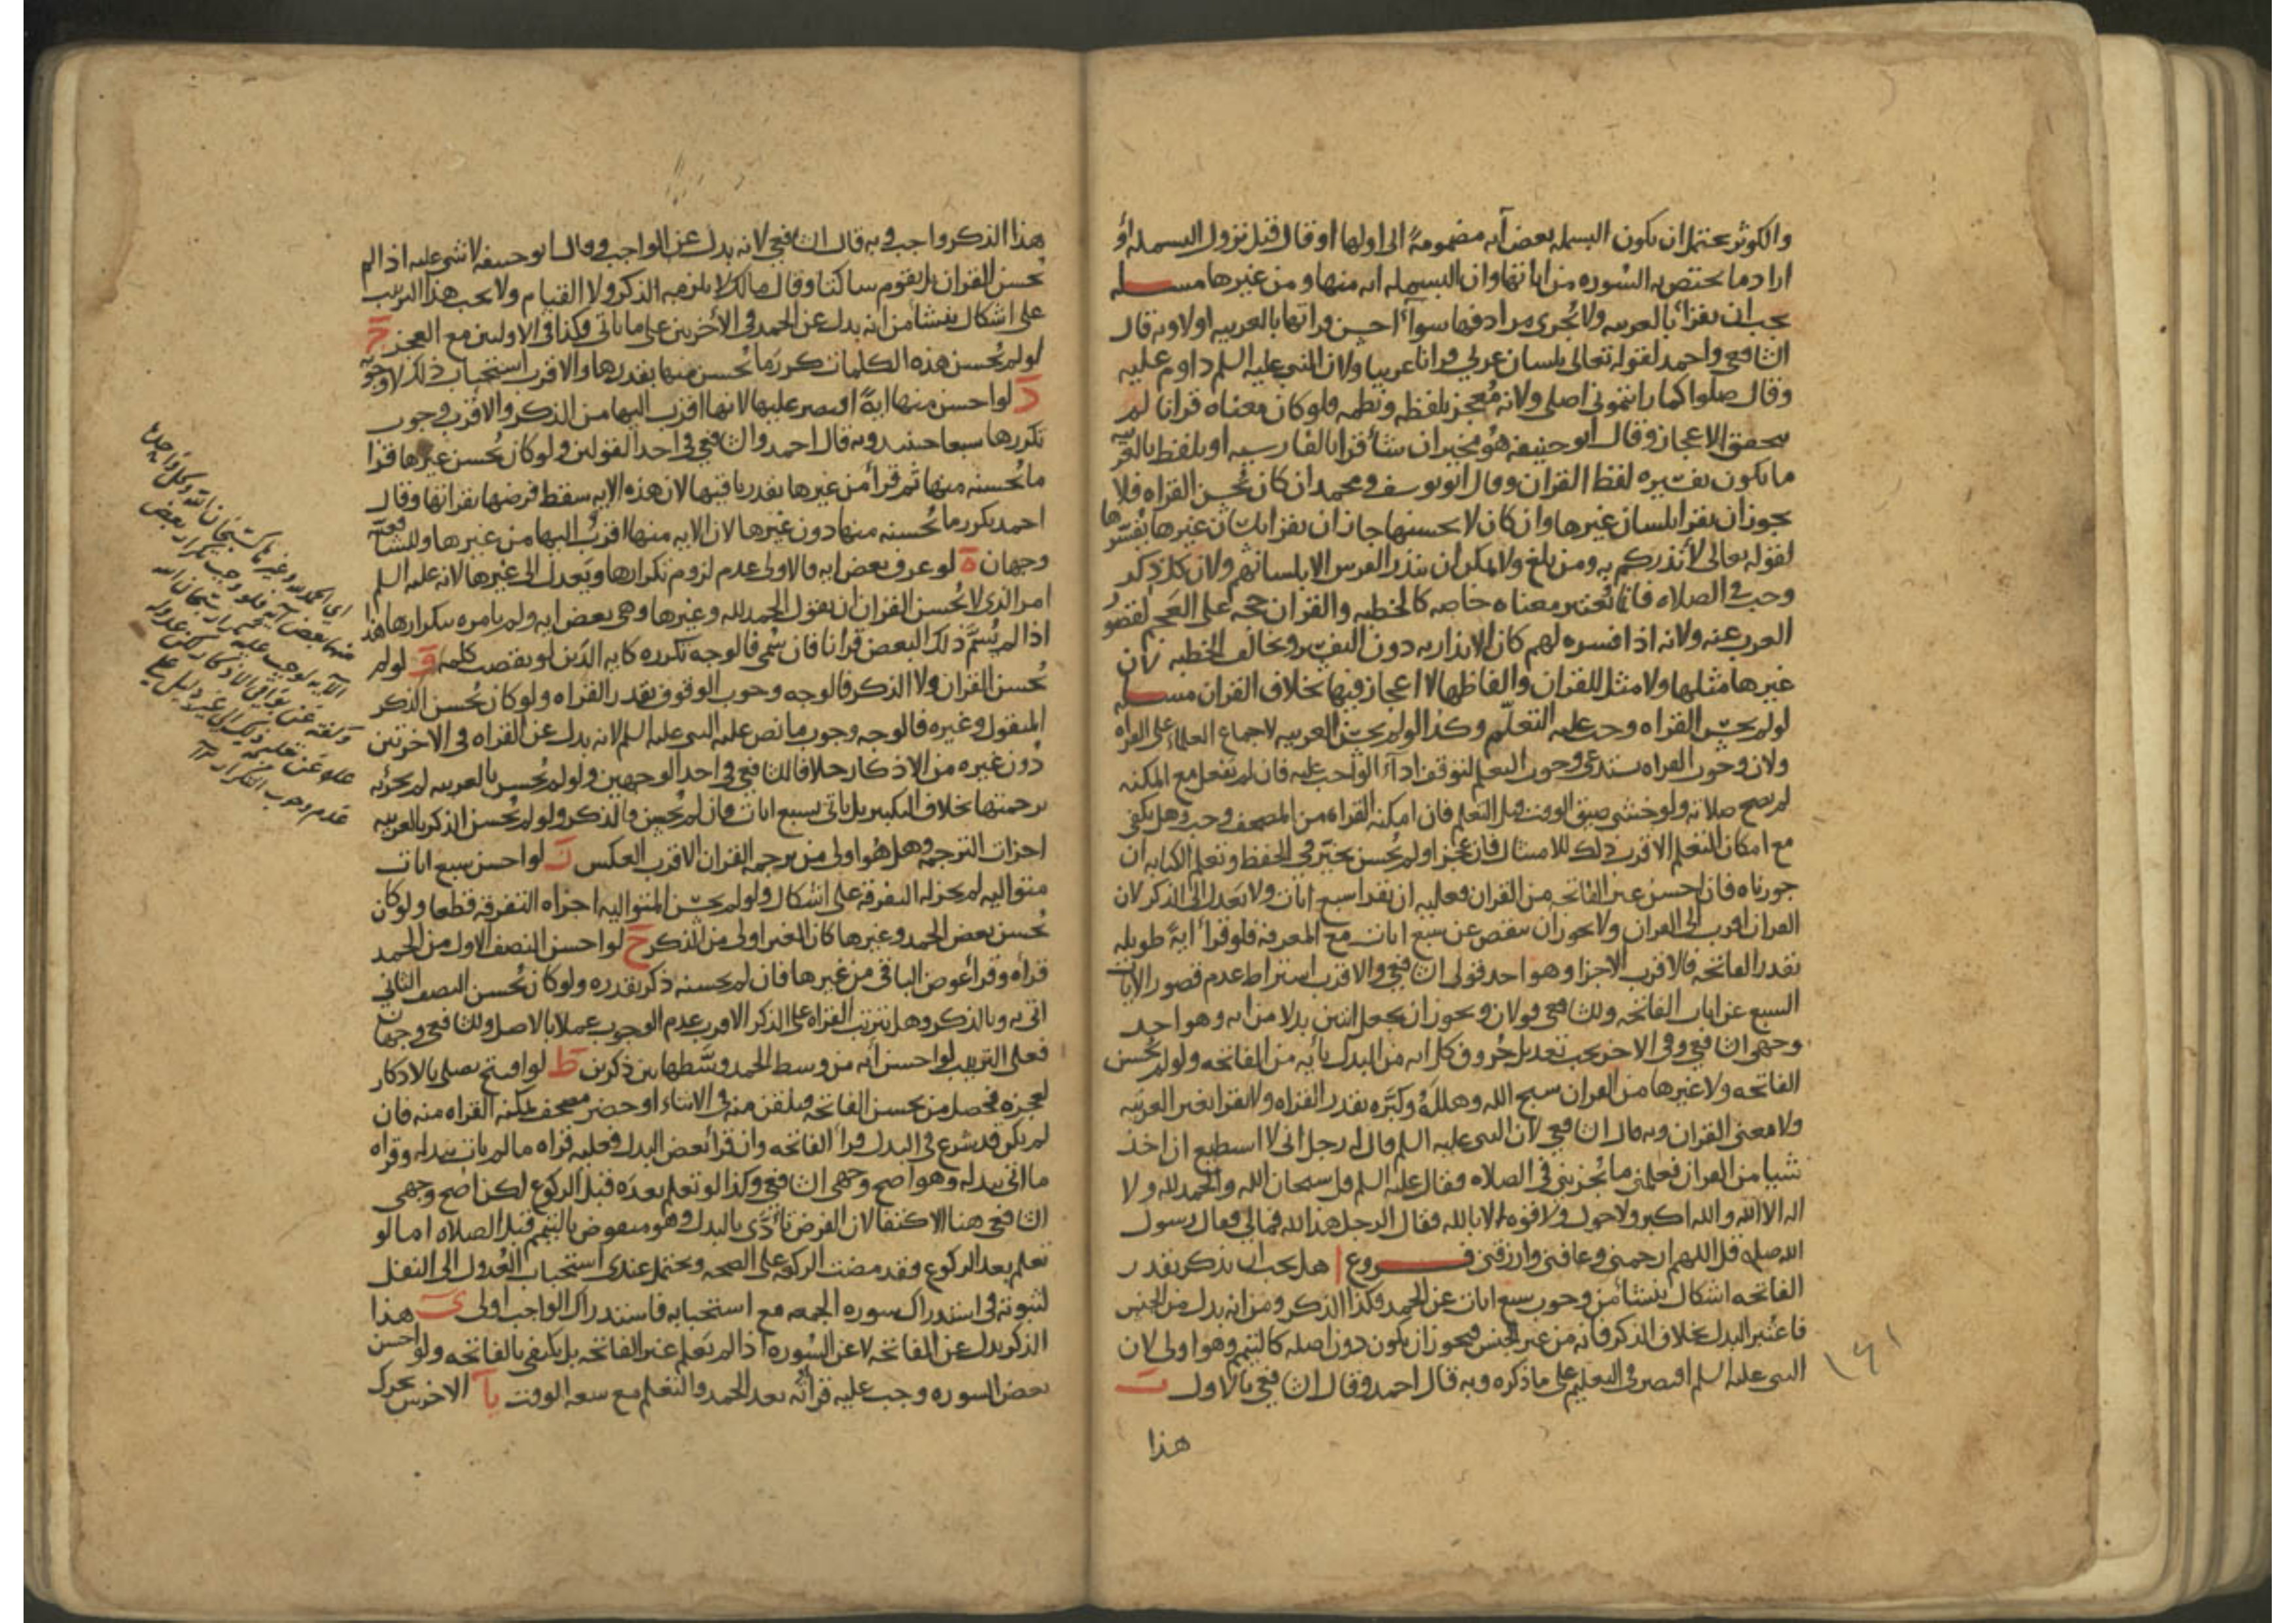 والكوثر يحتمل ان يكون البسمله بعض آيه مضمومةً الى اولها او قال قبل نزول البسمله أو
اراد ما يختص به السوره من اياتها وان البسمله ايه منها ومن غيرها مسله
يجب ان يقرأ بالعربيه ولا يُجزي مرادفها سوآء احسن قراتها بالعربيه او لا وبه قال
الشافعي واحمد لقوله تعالى بلسان عربي قرانا عربيا ولان النبي عليه السلم داوم عليه
وقال صلوا كما رايتموني اصلي ولانه مُعجز بلفظه ونظمه فلو كان معناه قرانا لم
يتحقق الاعجاز وقال ابو حنيفه هو مخير ان شأ قرا بالفارسيه او بلفظ بالعربيه
ما يكون تفسيره لفظ القران وقال ابو يوسف ومحمد ان كان يُحسن القراه فلا
يجوز ان يقرا بلسان غيرها وان كان لا يحسنها جاز ان يقرا بلسان غيرها يفسرها
لقوله تعالى لأنذركم به ومن بلغ ولا يمكن ان ينذر الفرس الا بلسانهم ولان كل ذكر
وجب في الصلاه فانما يُعتبر معناه خاصه كالخطبه والقران حجه على العجم لقصور
العرب عنه ولانه اذا فسره لهم كان الانذار به دون التفسير ويخالف الخطبه لان
غيرها مثلها ولا مثل للقران والفاظها لا اعجاز فيها بخلاف القران مسله
لو لم يحسن القراه وجب عليه التعلّم وكذا لو لم يحسن العربيه لاجماع العلماء على القراه
ولان وجوب القراه يستدعي وجوب التعلم لتوقف ادآء الواجب عليه فان لم يفعل مع المكنه
لم يصح صلاته ولو خشي ضيق الوقت قبل التعلم فان امكنه القراه من المصحف وجب وهل يكفي
مع امكان التعلم الاقرب ذلك للامتثال فان عجز او لم يُحسن يخيّر في الحفظ وتعلم الكتابه ان
جوزناه فان احسن غير الفاتحه من القران فعليه ان يقرا سبع ايات ولا يعدل الى الذكر لان
القران اقرب الى القران ولا يجوز ان ينقص عن سبع ايات مع المعرفه فلو قرأ ايةً طويله
بقدر الفاتحه فالاقرب الاجزا وهو احد قولي الشافعي والاقرب اشتراط عدم قصور الايات
السبع عن ايات الفاتحه وللشافعي قولان ويجوز ان يجعل اثنين بدلا من ايه وهو احد
وجهي الشافعي وفي الاخر يجب تعديل حُروف كل ايه من البدل بأيه من الفاتحه ولو لم يُحسن
الفاتحه ولا غيرها من القران سبح الله وهللهُ وكبّره بقدر القراه ولا يقرا بغير العربيّه
ولا معنى القران وبه قال الشافعي لان النبي عليه السلم قال له رجل اني لا استطيع ان اخذ
شيئا من القران فعلمني ما يُجزيني في الصلاه فقال عليه السلم قل سبحان الله والحمد لله ولا
اله الا الله والله اكبر ولا حول ولا قوه الا بالله فقال الرجل هذا لله فما لي فقال رسول
الله صله قل اللهم ارحمني وعافني وارزقني فروع ا هل يجب ان يذكر بقدر
الفاتحه اشكال ينشأ من وجوب سبع ايات عن الحمد فكذا الذكر ومن انه بدل من الجنس
فاعتُبر البدل بخلاف الذكر فانه من غير الجنس فيجوز ان يكون دون اصله كالتيمم وهو اولى لان
النبي عليه السلم اقتصر في التعليم على ما ذكره وبه قال احمد وقال الشافعي بالاول ب
هذا
هذا الذكر واجب وبه قال الشافعي لانه بدل عن الواجب وقال ابو حنيفه لا شي عليه اذا لم
يُحسن القران بل يقوم ساكتا وقال مالك لا يلزمه الذكر ولا القيام ولا يجب هذا الترتيب
على اشكال ينشأ من انه بدل عن الحمد في الأخرتين على ما ياتي فكذا في الاولتين مع العجز ج
لو لم يُحسن هذه الكلمات كرر ما يُحسن منها بقدرها والاقرب استحباب ذلك لا وجوبه
د لو احسن منها ايةً اقتصر عليها لانها اقرب اليها من الذكر والاقرب وجوب
تكررها سبعا حينئذ وبه قال احمد والشافعي في احد القولين ولو كان يُحسن غيرها قرا
ما يُحسنه منها ثم قرأ من غيرها بقدر باقيها لان هذه الايه سقط فرضها بقراتها وقال
احمد يكرر ما يُحسنه منها دون غيرها لان الايه منها اقرب اليها من غيرها وللشافعيّه
وجهان ه لو عرف بعض ايه فالاولى عدم لزوم تكرارها ويعدل الى غيرها لانه عليه السلم
امر الذي لا يُحسن القران ان يقول الحمد لله وغيرها وهي بعض ايه ولم يامره بتكرارها هذا
اذا لم يُسَم ذلك البعض قرانا فان سُمي فالوجه تكرره كايه الدَين لو نقصت كلمه و لو لم
يُحسن القران ولا الذكر فالوجه وجوب الوقوف بقدر القراه ولو كان يُحسن الذكر
المنقول وغيره فالوجه وجوب ما نص عليه النبي عليه السلم لانه بدل عن القراه في الاخرتين
دُون غيره من الاذكار خلافا للشافعي في احد الوجهين ولو لم يُحسن بالعربيه لم يجزئه
ترجمتها بخلاف التكبير بل ياتي بسبع ايات فان لم يُحسن فالذكر ولو لم يُحسن الذكر بالعربيه
اجزات الترجمه وهل هُو اولى من ترجمه القران الاقرب العكس ز لو احسن سبع ايات
متواليه لم يجزله التفرقه على اشكال ولو لم يحسن المتواليه اجزاه التفرقه قطعا ولو كان
يُحسن بعض الحمد وغيرها كان الغير اولى من الذكر ح لو احسن النصف الاول من الحمد
قرأه وقرأ عوض الباقي من غيرها فان لم يحسنه ذكر بقدره ولو كان يُحسن النصف الثاني
اتي به وبالذكر وهل يترتب القراه على الذكر الاقرب عدم الوجوب عملا بالاصل وللشافعي وجهان
فعلى الترتيب لو احسن أيه من وسط الحمد وسّطها بين ذكرين ط لو افتتح يصلي بالاذكار
لعجزه فحصل من يحسن الفاتحه وتلقن منه في الاثناء او حضر مصحف يمكنه القراه منه فان
لم يكن قد شرع في البدل قرأ الفاتحه وان قرأ بعض البدل فعليه قراه ما لم يات ببدله وقراه
ما اتى ببدله وهو اصح وجهي الشافعي وكذا لو تعلم بعده قبل الركوع لكن اصح وجهي
الشافعي هنا الاكتفا لان الفرض تأدّى بالبدل وهو منقوض بالتيمم قبل الصلاه اما لو
تعلم بعد الركوع فقد مضت الركعه على الصحه ويحتمل عندي استحباب العُدول الى النفل
لثبوته في استدراك سوره الجمعه مع استحبابه فاستدراك الواجب اولى ي هذا
الذكر بدل عن الفاتحه لا عن السُوره اذا لم يَعلم غير الفاتحه بل يكفي بالفاتحه ولو احسن
بعض السوره وجب عليه قرأته بعد الحمد والتعلم مع سعه الوقت يا الاخرس يحرك